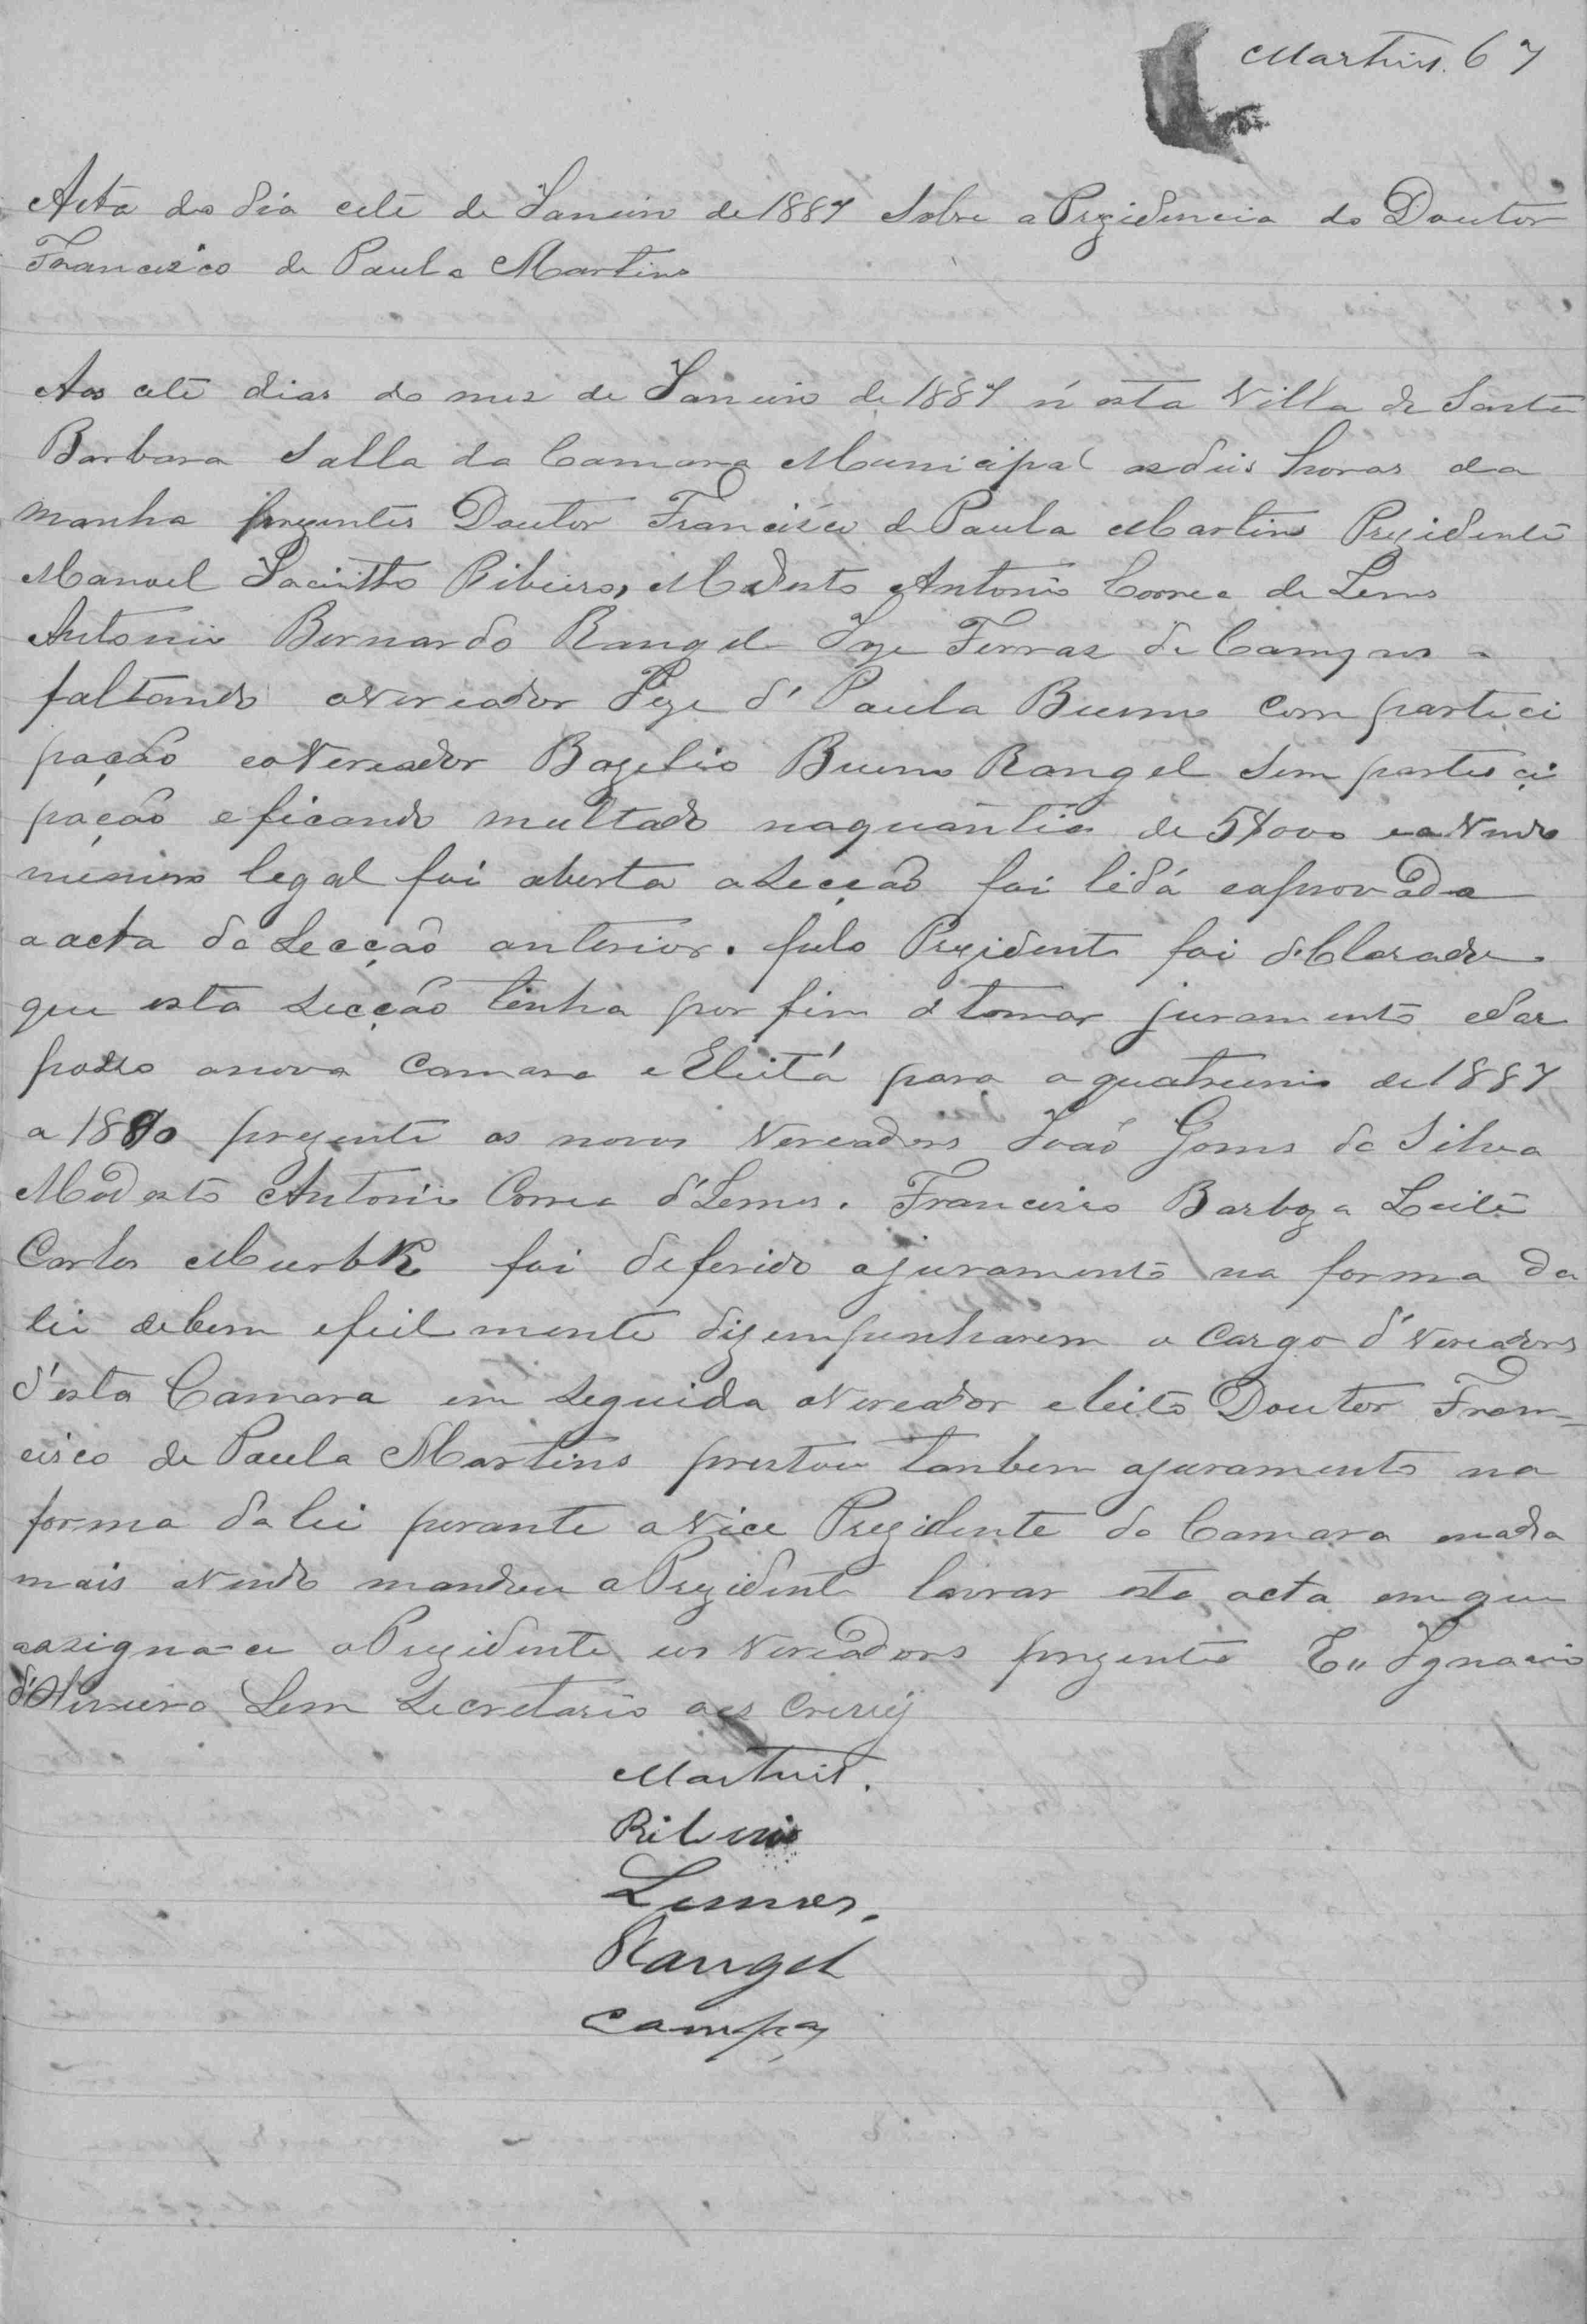 Martins. 67
Acta do dia cete de Janeiro de 1887 Sobre a Prezidencia do Doutor
Francisco de Paula Martins
Aos cete dias do mez de Janeiro de 1887 n'esta Villa de Santa
Barbara Salla da Camara Municipal as deis horas da
manha prezentes Doutor Francisco de Paula Martins Prezidente
Manoel Jacintho Ribeiro, Modesto Antonio Correa de Lemos
Antonio Bernardo Rangel Joze Ferraz de Campos
faltando o Vereador Joze d' Paula Bueno com partici
pação e o Vereador Bazelio Bueno Rangel Sem partici
pação e ficando multado na quantia de 5$000 e avendo
numero legal foi aberta a Secção foi lida e aprovada
a acta da Secção anterior. pelo Prezidente foi declarado
que esta Secção tinha por fim d tomar juramento e dar
posse a nova Camara e Eleita para o quatrienio de 1887
a 1890 prezente os novos Vereadores João Gomes da Silva
Modesto Antonio Correa d'Lemos. Francisco Barboza Leite
Carlos foi deferido o juramento na forma da
lei de bem e fiel mente dizempenharem o Cargo d'Vereadores
d'esta Camara em Seguida o Vereador eleito Doutor Fran=
cisco de Paula Martins prestou tanbem o juramento na
forma da lei perante o Vice Prezidente da Camara e nada
mais avendo mandou o Prezidente lavrar esta acta em que
asigna-ce o Prezidente e os Vereadores prezente Eu Ignacio
d'Oliveira Lem Secretario
Martins.
Ribeiro
Lemos.
Rangel
Campos